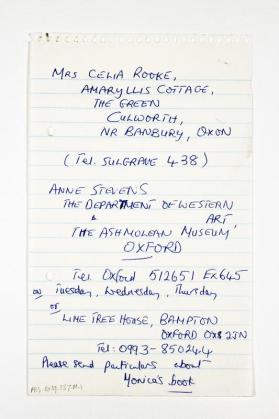 MRS CELIA ROOKE,
AMARYLLIS COTTAGE,
THE GREEN
CULWORTH,
NR BANBURY, OXON
(Tel. SULGRAVE 438)
ANNE STEVENS
THE DEPARTMENT OF WESTERN
ART,
THE ASHMOLEAN MUSEUM
OXFORD
Tel. Oxford 512651 Ex645
on Tuesday, Wednesday, Thursday
or
LIME TREE HOUSE, BAMPTON
OXFORD OX8 2JN
Tel: 0993-850244
Please send particulars about
Monica's book